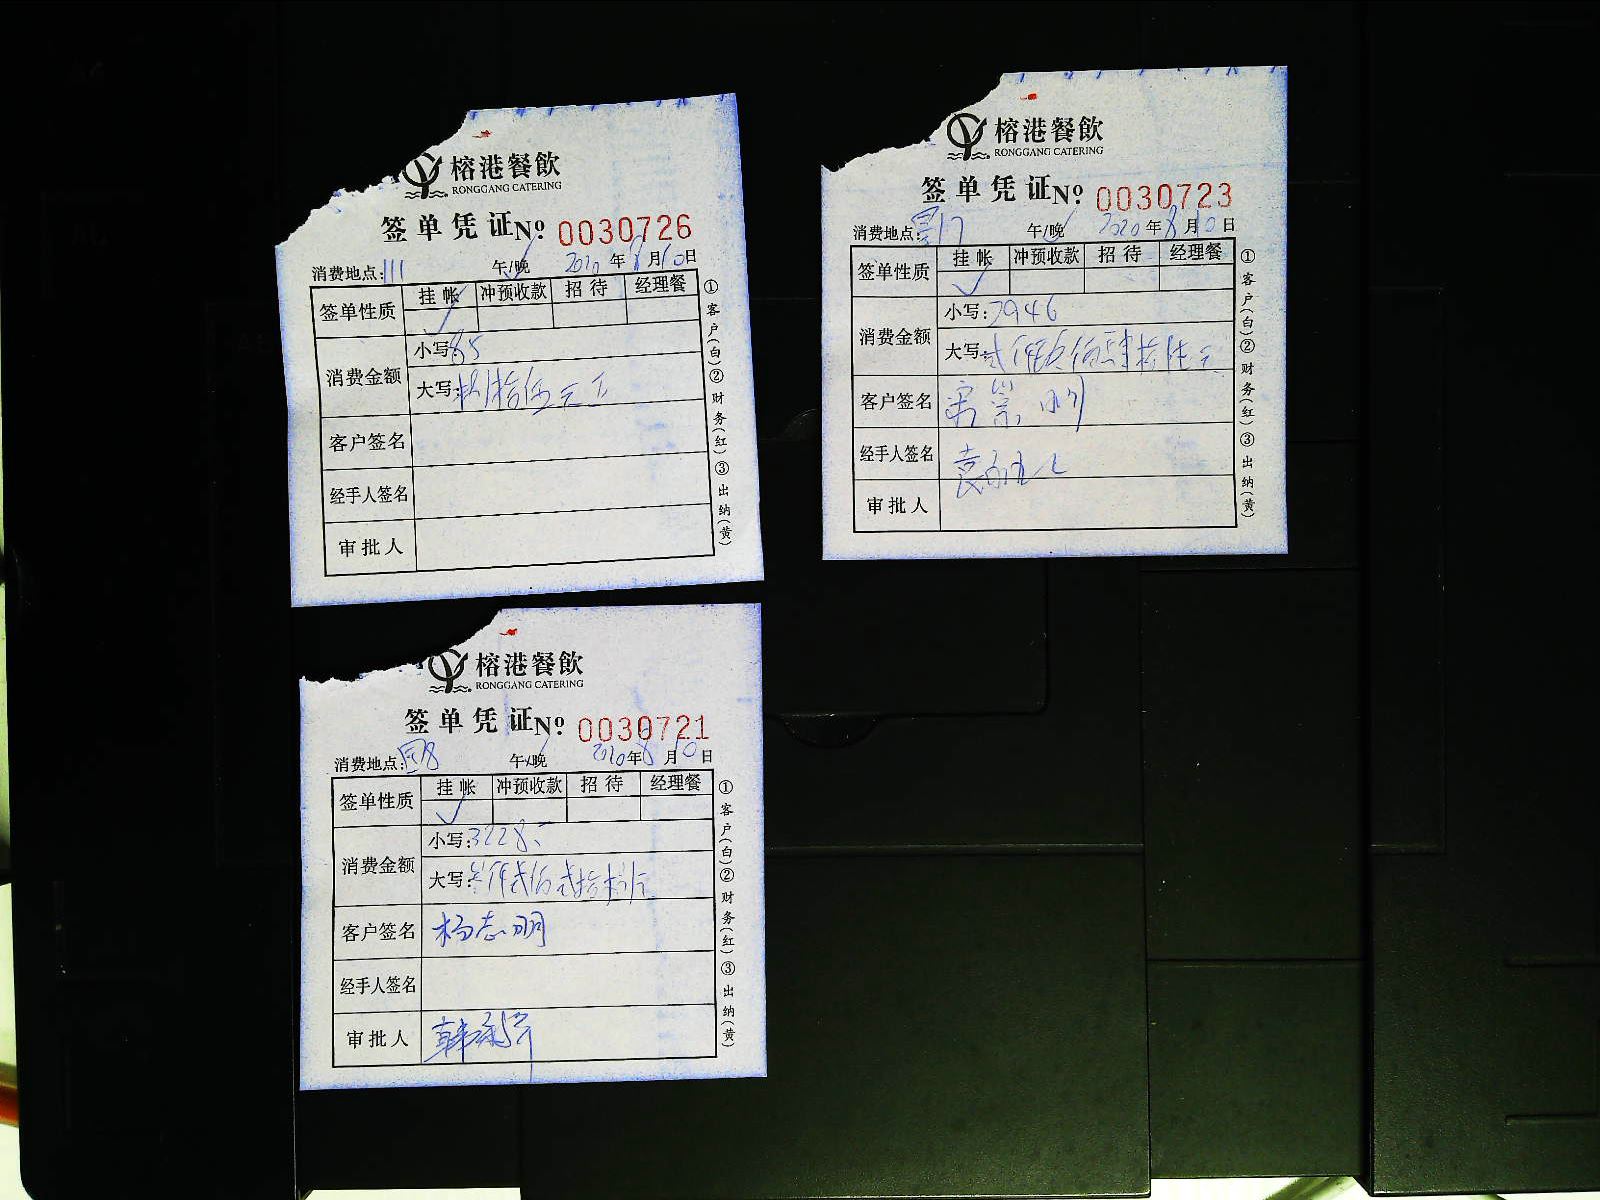 榕港餐飲
RONGGANG CATERING
签单凭证№ 0030726
消费地点:111 午/晚 2020年8月10日
签单性质 挂帐 冲预收款 招待 经理餐
✓
消费金额 小写:85
大写:捌拾伍元正
客户签名
经手人签名
审批人
①客户(白)②财务(红)③出纳(黄)
榕港餐飲
RONGGANG CATERING
签单凭证№ 0030723
消费地点: 17 午/晚 2020年8月10日
签单性质 挂帐 冲预收款 招待 经理餐
✓
消费金额 小写:2946
大写:贰仟玖佰肆拾陆元
客户签名
经手人签名 袁
审批人
①客户(白)②财务(红)③出纳(黄)
榕港餐飲
RONGGANG CATERING
签单凭证№ 0030721
消费地点: 8 午/晚 2020年8月10日
签单性质 挂帐 冲预收款 招待 经理餐
✓
消费金额 小写:3228.-
大写:叁仟贰佰贰拾捌元
客户签名 杨志明
经手人签名
审批人 韩
①客户(白)②财务(红)③出纳(黄)